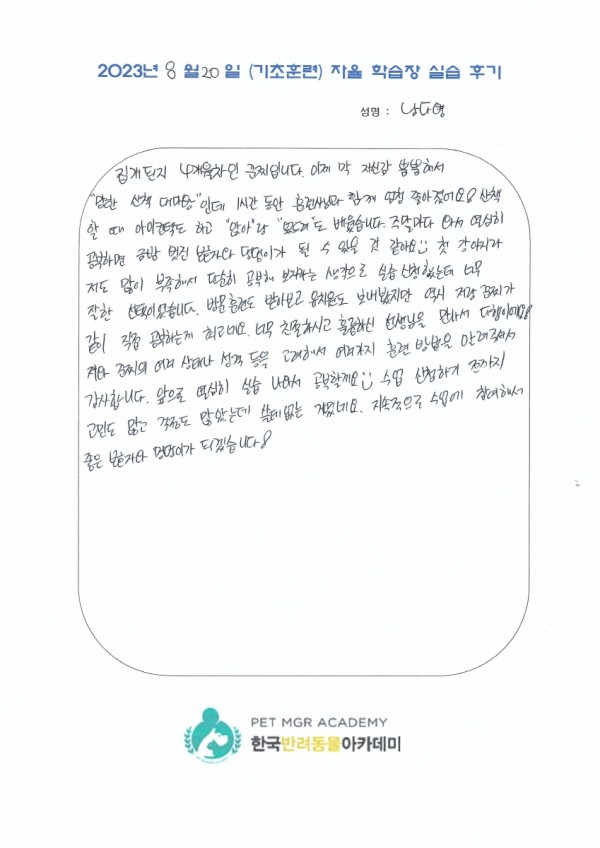 2023년 8 월 20 일 (기초훈련) 자율 학습장 실습 후기
성명 : 남다영
집개된지 4개월차인 곰찌입니다. 이제 막 자신감 뿜뿜해서
산책 대마왕"인데 1시간 동안 훈련사님과 함께 엄청 좋아졌어요! 산책
할 때 아이컨택도 하고 "앉아"랑 도 배웠습니다. 주말마다 와서 열심히
공부하면 금방 멋진 보호자와 댕댕이가 될 수 있을 것 같아요 첫 강아지라
저도 많이 부족해서 열심히 공부해 보자라는 생각으로 실습 신청했는데 너무
잘한 선택이었습니다. 방문훈련도 받아보고 유치원도 보내봤지만 역시 저랑 곰찌가
같이 직접 공부하는게 최고네요. 너무 친절하시고 훌륭하신 선생님을 만나서 다행이에요!
저와 곰찌의 여러 상태나 성격 등을 고려해서 여러가지 훈련 방법을 알려주셔서
감사합니다. 앞으로 열심히 실습 나와서 공부할게요 수업 신청하기 전까지
고민도 많고 걱정도 많았는데 쓸데없는 거였네요. 지속적으로 수업에 참여해서
좋은 보호자와 멍멍이가 되겠습니다!
PET MGR ACADEMY
한국반려동물아카데미